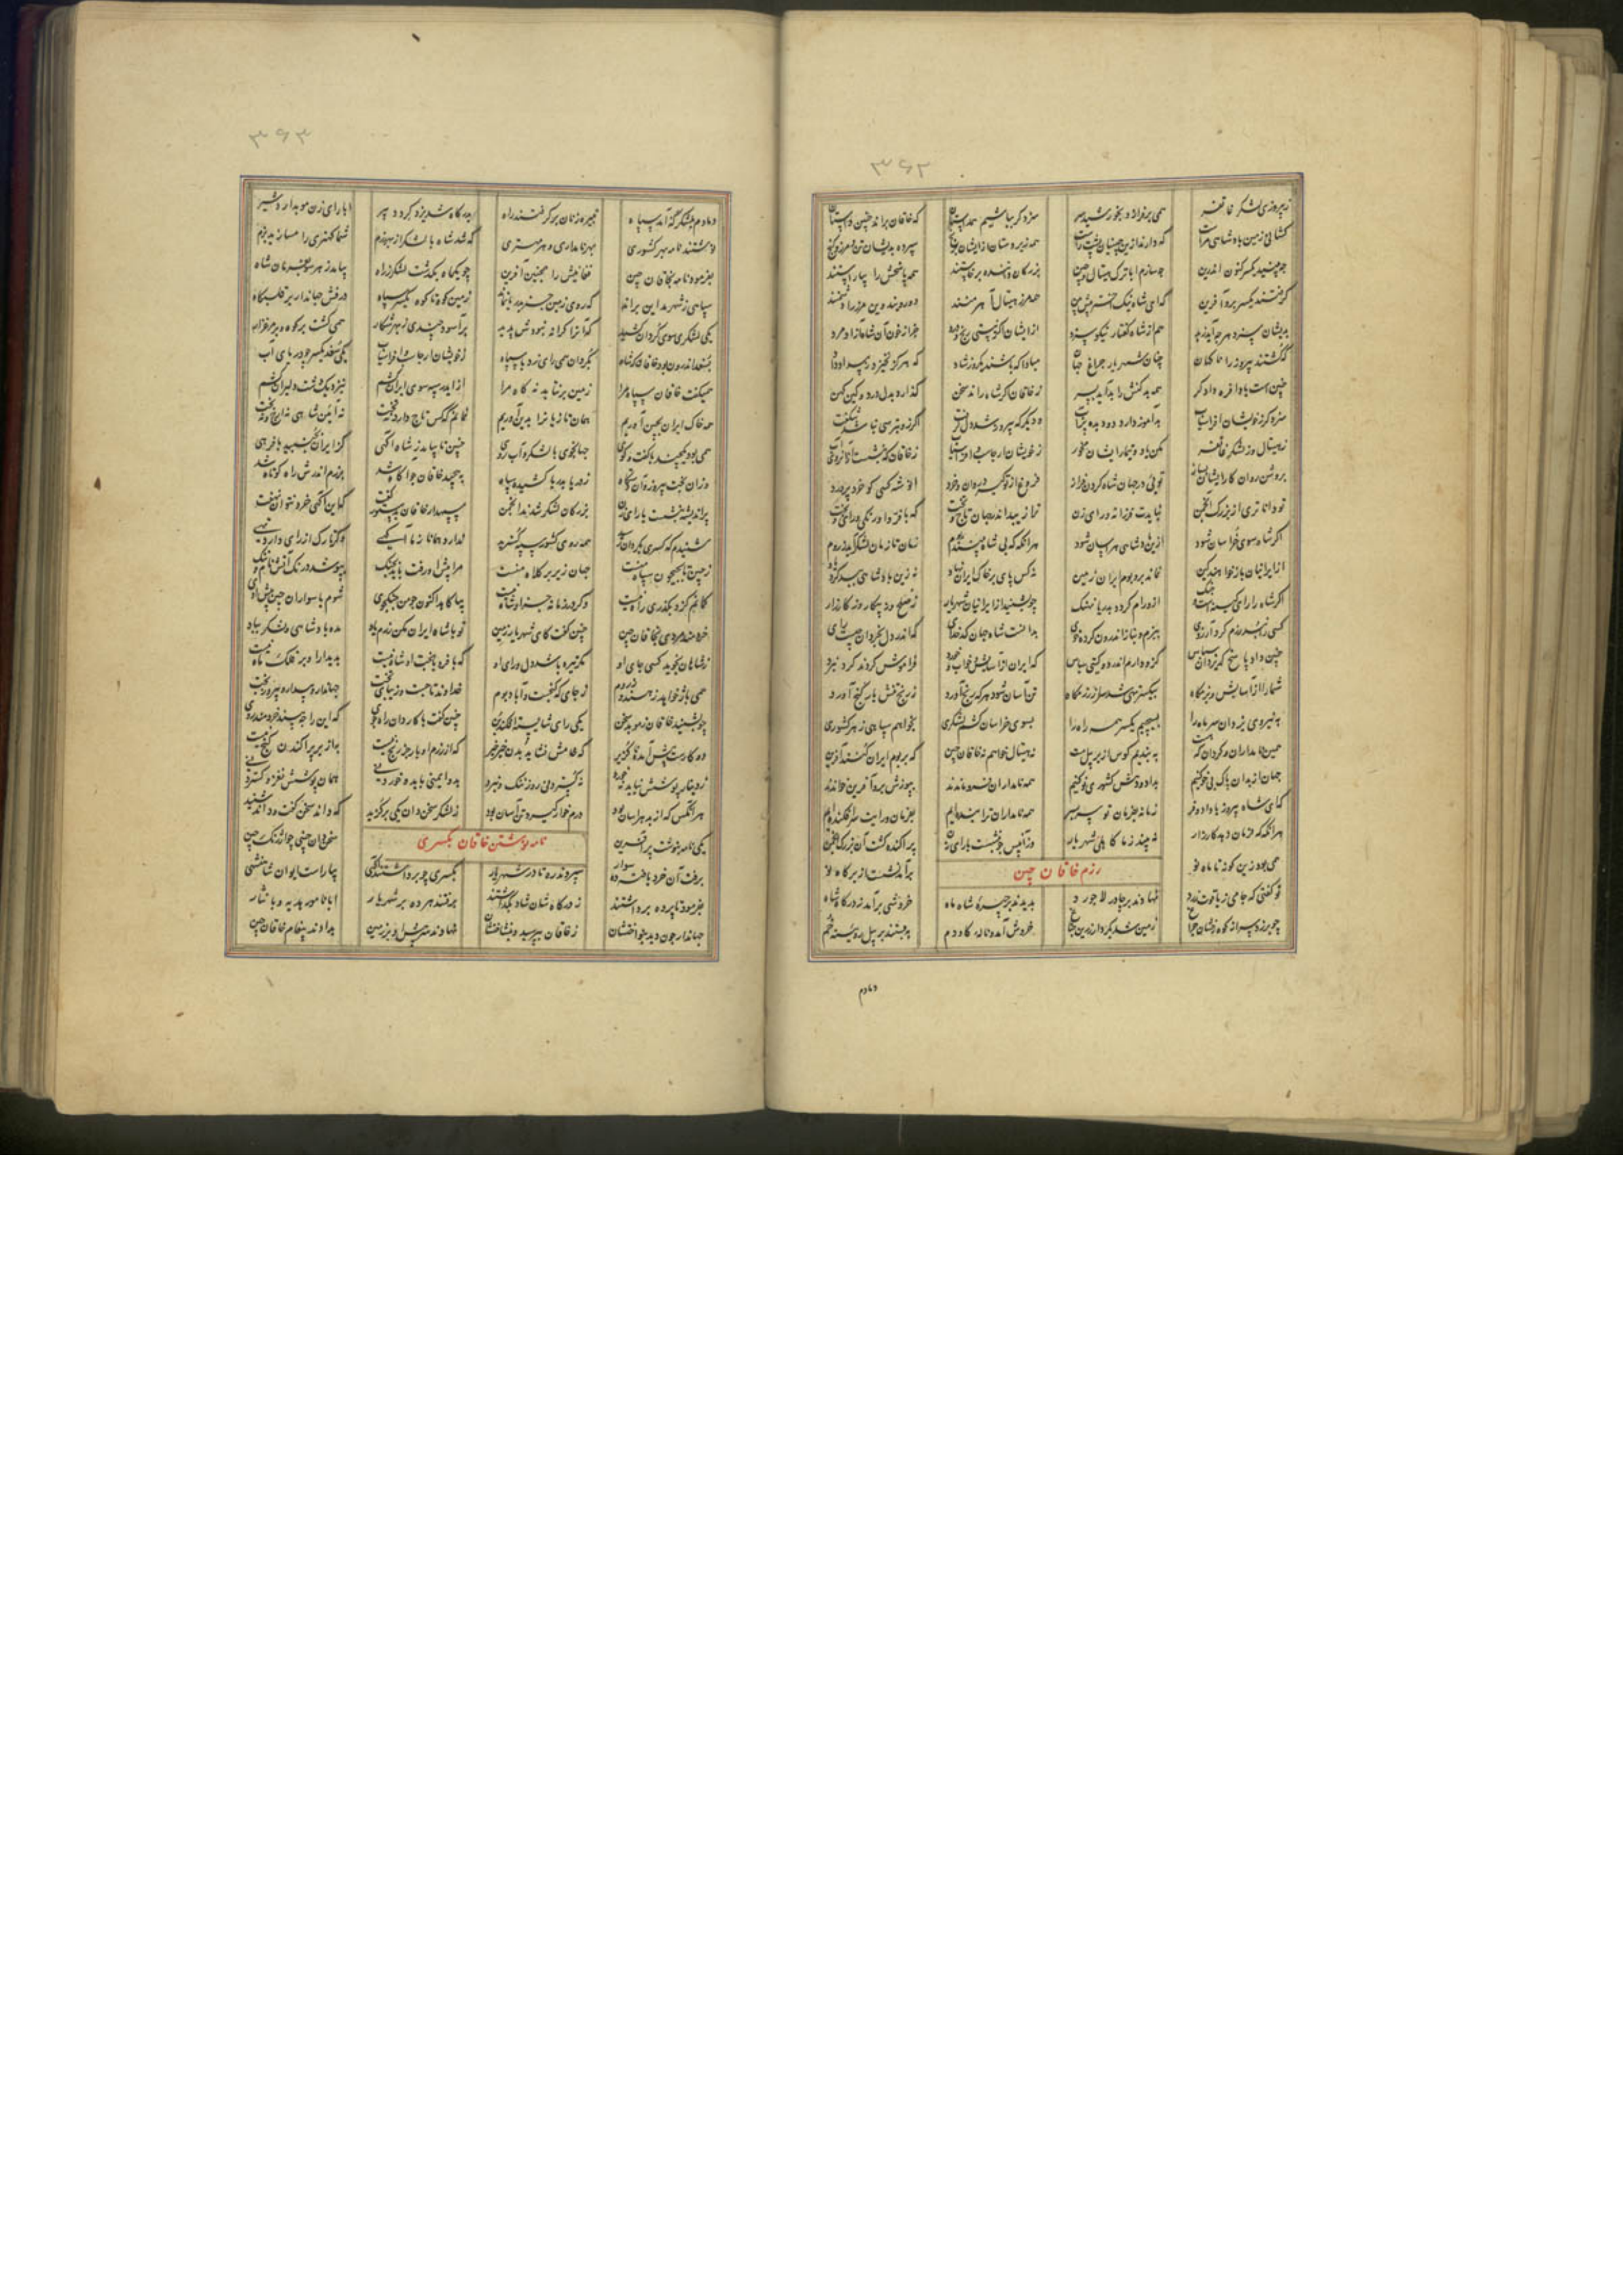 ۳۶۲
ز پیروزی لشکر غاتفر همی برفرازد بخورشید سر سزد گر بباشیم همداستان که خاقان براند چنین داستان
کشانی زمین پادشاهی مراست که دارند ازین چینیان پشت راست همه زیردستان از ایشان برنج سپرده بدیشان تن و مرز و گنج
چو بشنید یکسر کنون اندرین چه سازیم با ترک هیتال و چین بزرگان داننده برخاستند همه پاسخش را بیاراستند
گرفتند یکسر برو آفرین که ای شاه نیک اختر پیش بین همه مرز هیتال آهرمنند دورویند و این مرز را دشمنند
بدیشان سزد هر چه آید ز بد هم از شاه گفتار نیکو سزد از ایشان اگر نیستی رنج و درد جز از خون آن شاه آزاد مرد
که کشتند پیروز را ناگهان چنان شهریار چراغ جهان مبادا که باشند یکروز شاد که هرگز نخیزد ز بیداد داد
چنین است بادافره دادگر همه بد کنش را بد آید بسر ز خاقان اگر شاه راند سخن که دارد بدل درد و کین کهن
سزد گر ز خویشان افراسیاب بد آموز دارد دو دیده پر آب و دیگر که پیروز شد دل گرفت اگر زو بترسی نباشد شگفت
ز هیتال وز لشکر غاتفر مکن یاد و تیمار ایشان مخور ز خویشان ارجاسپ و افراسیاب ز خاقان که بنشست ازان روی آب
بروشن روان کار ایشان بساز توئی در جهان شاه گردن فراز فروغ از تو گیرد روان و خرد انوشه کسی کو خرد پرورد
تو داناتری از بزرگ انجمن نبایدت فرزانه و رای زن ترا زیبد اندر جهان تاج و تخت که با فر و اورنگی و رای و بخت
اگر شاه سوی خراسان شود ازین پادشاهی هراسان شود هرانگه که بی شاه بینند بوم زمان تا زمان لشکر آید ز روم
از ایرانیان باز خواهند کین نماند بر و بوم ایران زمین نه کس پای بر خاک ایران نهاد نه زین پادشاهی ببد کرد یاد
اگر شاه را رای کین است و جنگ ازو رام گردد بدریا نهنگ چو بشنید از ایرانیان شهریار ز صلح و ز پیکار وز کارزار
کسی را نبد رزم کرد آرزوی ببزم و بناز اندرون کرده خوی بدانست شاه جهان کدخدای که اندر دل بخردان چیست رای
چنین داد پاسخ که یزدان سپاس کزو دارم اندر دو گیتی هراس که ایران از آسایش و خواب و خورد فراموش کردند گرد نبرد
شما را از آسایش و بزمگاه تن آسان شود هر که رنج آورد ز رنج تنش باز گنج آورد
به نیروی یزدان سر ماه را بسیجیم یکسر همه راه را بسوی خراسان کشم لشکری بخواهم سپاهی ز هر کشوری
همین نامداران و گردان که هست به بندیم کوس از بر پیل مست نه هیتال خواهم نه خاقان چین که بر بوم ایران کنند آفرین
جهان از بدان پاک بی خو کنیم بداد و دهش کشوری نو کنیم همه نامداران فرو ماندند بپوزش برو آفرین خواندند
که ای شاه پیروز با داد و فر زمانه بفرمان تو سر بسر همه نامداران ترا بنده ایم بفرمان و رایت سرافکنده ایم
هرانگه که فرمان دهد کارزار نه بیند ز ما کاهلی شهریار وزان پس چو بنشست با رای زن پراکنده گشت آن بزرگ انجمن
رزم خاقان چین
همی بود زین گونه تا ماه نو برآمد نشست از بر گاه نو
تو گفتی که جامی ز یاقوت زرد نهادند بر چادر لاجورد بدیدند بر چهره شاه ماه خروشی برآمد ز درگاه شاه
چو برزد سر از کوه رخشان چراغ زمین شد بکردار زرین جناغ خروش آمد و ناله گاودم به بستند بر پیل رویینه خم
دمادم
۳۶۳
دمادم بلشکرگه آمد سپاه تبیره زنان برگرفتند راه بدرگاه شد یزدگرد دبیر ابا رای زن موبد اردشیر
نوشتند نامه بهر کشوری بهر نامداری و هر مهتری که شد شاه با لشکر از بهر رزم شما کهتری را مسازید بزم
بفرمود نامه بخاقان چین فغانیش را همچنین آفرین چو یکماه بگذشت لشکر ز راه بیامد ز هر سو بفرمان شاه
سپاهی ز شهر مداین براند که روی زمین جز بدریا نماند زمین کوه تا کوه یکسر سپاه درفش جهاندار بر قلبگاه
یکی لشکری سوی گرگان کشید که آنرا کرانه نبد کس ندید برآسود چندی ز بهر شکار همی گشت بر کوه و بر مرغزار
بسغد اندرون بود خاقان که شاه بگرگان همی رای زد با سپاه ز خویشان ارجاسپ و افراسیاب یکی سغد یکسر چو دریای آب
همیگفت خاقان سپاه مرا زمین برنتابد نه گاه مرا از ایدر سپه سوی ایران کشم
همه خاک ایران بچین آوریم همان تازیانرا بدین آوریم نمانم که کس تاج دارد نه تخت نه آئین شاهی نه اورنگ و بخت
همی بود یکچند با گفت و گوی جهانجوی با لشکر و آب روی چنین تا بیامد ز شاه آگهی
وزان بخت پیروز و آن دستگاه ز دریا بدریا کشیده سپاه به پیچید خاقان چو آگاه شد برزم اندرش راه کوتاه شد
پراندیشه بنشست با رای زن بزرگان لشکر شدند انجمن سپهدار خاقان بدستور گفت که این آگهی خرد نتوان نهفت
شنیدم که کسری بگرگان رسید همه روی کشور سپه گسترید ندارد همانا ز ما آگهی وگر تارک از رای دارد تهی
ز چین تا بجیحون سپاه منست جهان زیر پر کلاه منست مرا پیش او رفت باید بجنگ بپوشد درنگ آتش نام و ننگ
گمانم کزو بگذری راه نیست وگر در زمانه جز او شاه نیست بیاگاهد اکنون چو من جنگجوی شوم با سواران چین پیش اوی
خردمند مردی بخاقان چین چنین گفت کای شهریار زمین تو با شاه ایران مکن رزم یاد مده پادشاهی و لشکر بباد
ز شاهان نجوید کسی جای او مگر تیره باشد دل و رای او که با فر و بخت او شاه نیست بدیدار او بر فلک ماه نیست
همی باژ خواهد ز هند و ز روم ز جائی که گنجست و آباد بوم خداوند تاجست و زیبای تخت جهاندار و بیدار و پیروز بخت
چو بشنید خاقان ز موبد سخن یکی رای شایسته افکند بن چنین گفت با کاردان راه جوی که این را چه بیند خردمند روی
دو کارست پیش آمده ناگزیر که خامش نشاید بدن خیر خیر که از رزم او باز جز رنج نیست به از بر پراکندن گنج نیست
ز دینار پوشش نیاید نه خورد نه گستردنی روز ننگ و نبرد بدو ایمنی باید و خوردنی همان پوشش نغز و گستردنی
هرانکس که از بد هراسان بود درم خوار گیرد تن آسان بود ز لشکر سخن دان یکی برگزید که داند سخن گفت و داند شنید
نامه نوشتن خاقان بکسری
یکی نامه بنوشت پر آفرین سخن دان چینی چو ارژنگ چین
برفت آن خرد یافته ده سوار سپرده ره تا در شهریار بکسری چو برداشتند آگهی بیاراست ایوان شاهنشهی
بفرمود تا پرده برداشتند ز درگاه شان شاد بگذاشتند برفتند هر ده بر شهریار ابا نامه و هدیه و با نثار
جهاندار چون دید بنواختشان ز خاقان بپرسید و بنشاختشان نهادند سر پیش او بر زمین بدادند پیغام خاقان چین